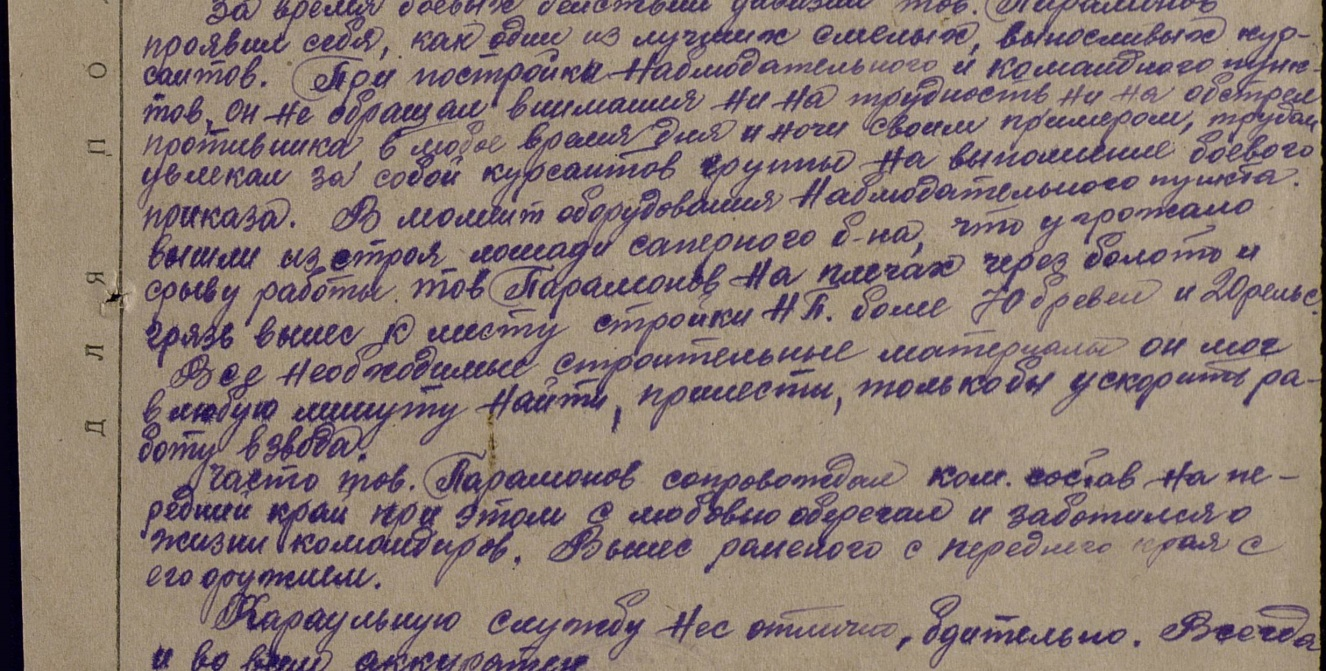 За время боевых действий дивизии тов. Парамонов
проявил себя, как один из лучших смелых, выносливых кур-
сантов. При постройки наблюдательного и командного пунк-
тов, он не обращал внимания ни на трудность ни на обстрел
противника, в любое время дня и ночи своим примером,
увлекал за собой курсантов группы на выполнение боевого
приказа. В момент оборудования наблюдательного пункта.
вышли из строя лошади саперного б-на, что угрожало
срыву работы. тов Парамонов на плечах через болото и
грязь вынес к месту стройки Н.П. более 70 бревен и 20 рельс.
Все необходимые строительные материалы он мог
в любую минуту найти, принести, только бы ускорить ра-
боту взвода.
Часто тов. Парамонов сопровождал ком. состав на пе-
редний край при этом с любовью оберегал и заботился о
жизни командиров. Вынес раненого с переднего края с
его оружием.
Караульную службу нес отлично, бдительно. Всегда
и во всем аккуратен
ДЛЯ ПО